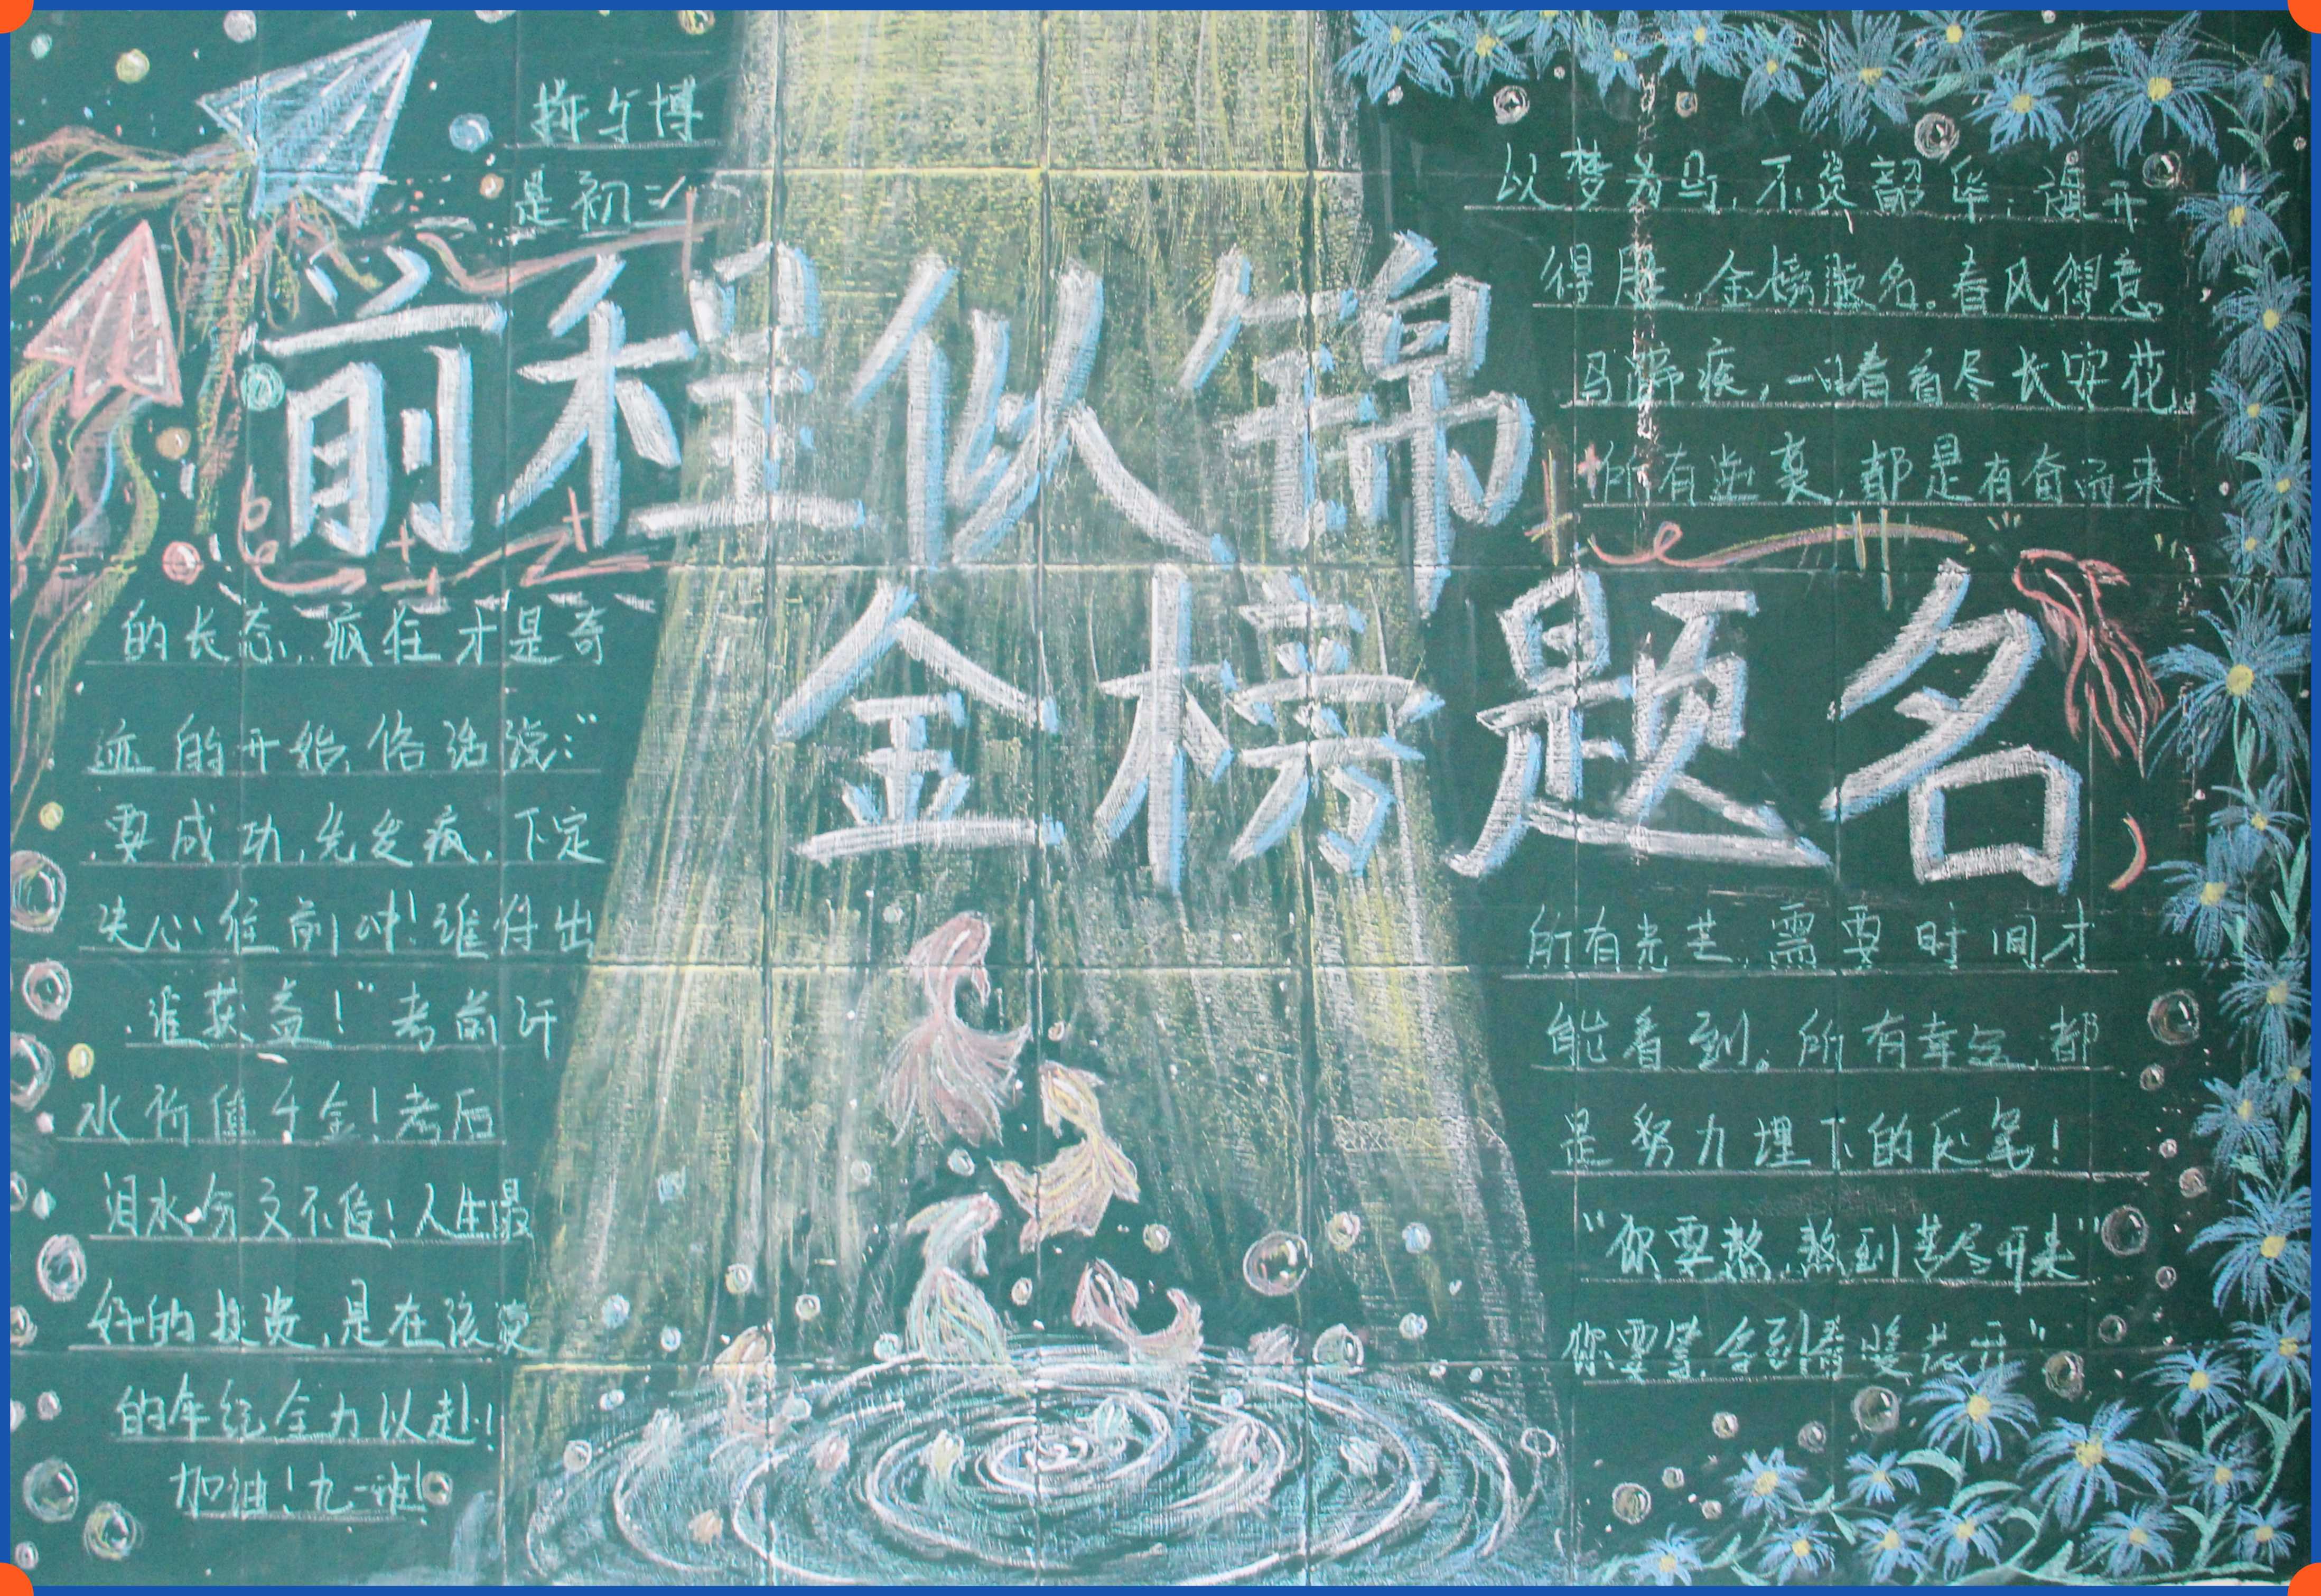 拚与博
是初三
前程似锦
金榜题名
的长态,疯狂才是奇
迹的开始,俗话说:“
要成功,先发疯,下定
决心往前冲!谁保出
谁获益!”考前汗
水价值千金!考后
泪水分文不值!人生最
好的投资,是在该拼
的年纪全力以赴!
加油!九一班!
以梦为马,不负韶华;旗开
得胜,金榜题名。春风得意
马蹄疾,一日看尽长安花
所有逆袭,都是有备而来
所有光芒,需要时间才
能看到。所有幸运,都
是努力埋下的伏笔!
“你要熬,熬到苦尽甘来”
你要等,等到春暖花开”